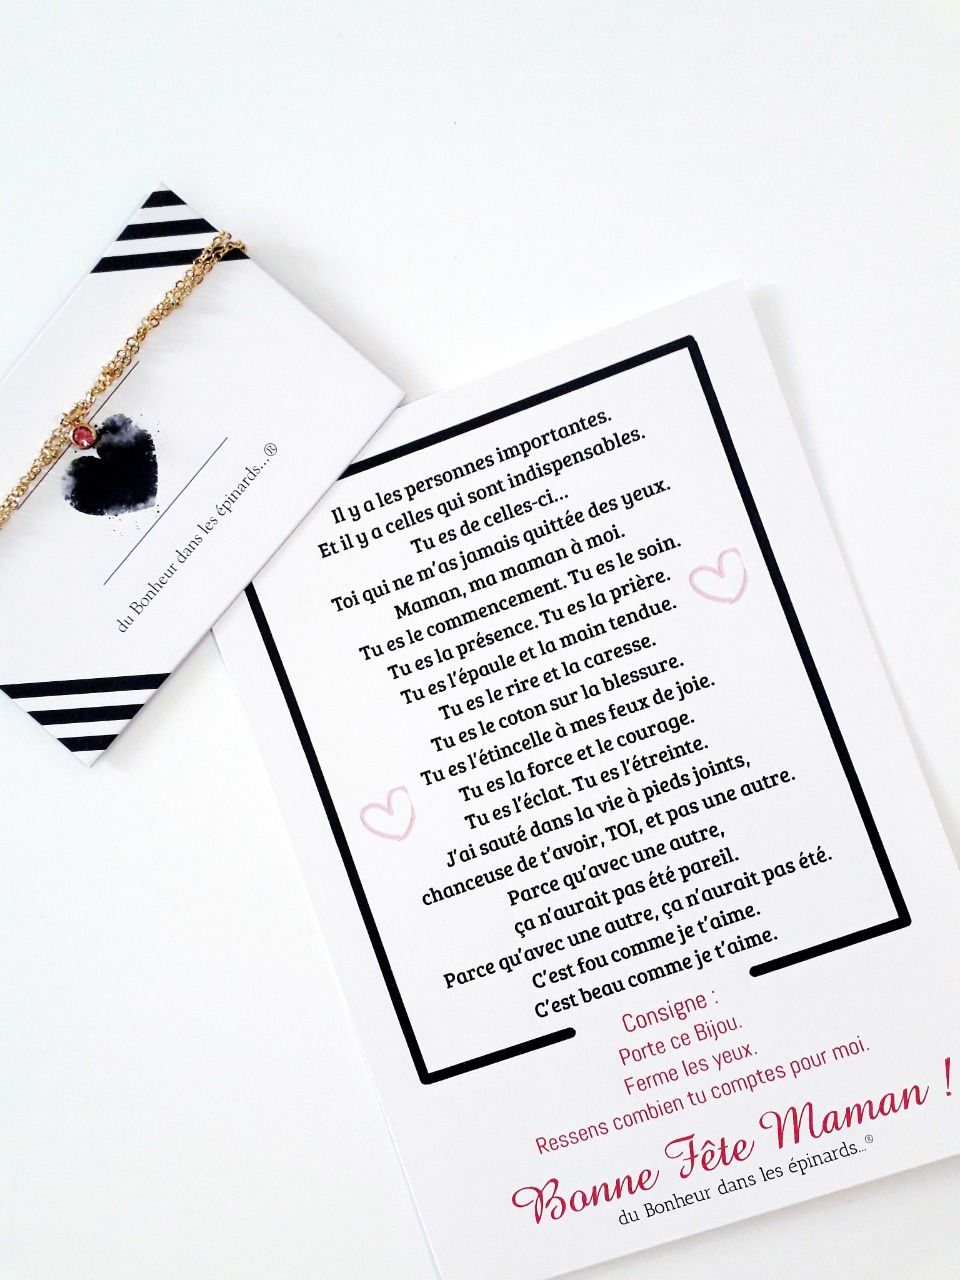 du Bonheur dans les épinards...®
Il y a les personnes importantes.
Et il y a celles qui sont indispensables.
Tu es de celles-ci...
Toi qui ne m'as jamais quittée des yeux.
Maman, ma maman à moi.
Tu es le commencement. Tu es le soin.
Tu es la présence. Tu es la prière.
Tu es l'épaule et la main tendue.
Tu es le rire et la caresse.
Tu es le coton sur la blessure.
Tu es l'étincelle à mes feux de joie.
Tu es la force et le courage.
Tu es l'éclat. Tu es l'étreinte.
J'ai sauté dans la vie à pieds joints,
chanceuse de t'avoir, TOI, et pas une autre.
Parce qu'avec une autre,
ça n'aurait pas été pareil.
Parce qu'avec une autre, ça n'aurait pas été.
C'est fou comme je t'aime.
C'est beau comme je t'aime.
Consigne :
Porte ce Bijou.
Ferme les yeux.
Ressens combien tu comptes pour moi.
Bonne Fête Maman !
du Bonheur dans les épinards...®